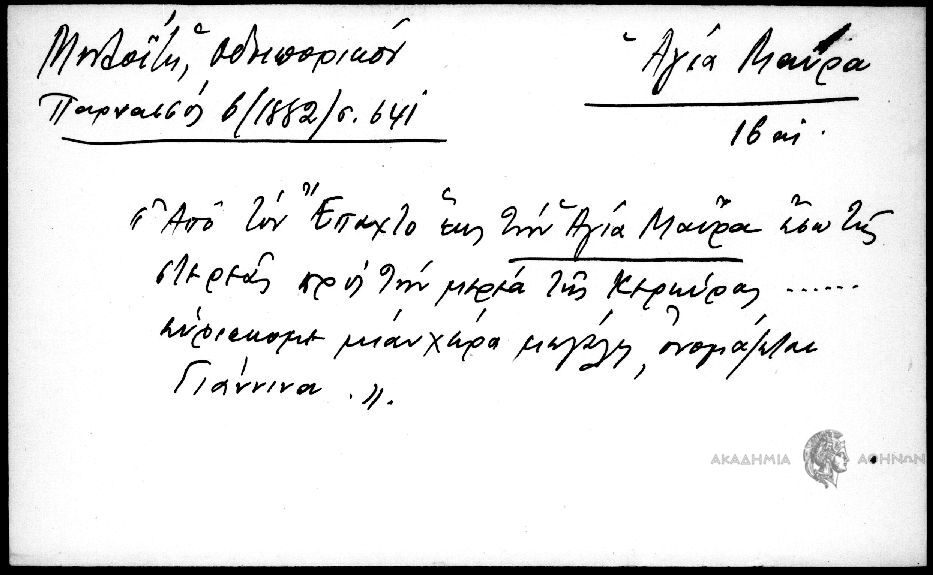 Μηλοΐτη, Ὁδοιπορικόν
Παρνασσός 6/(1882)σ. 641
Ἁγία Μαύρα
16 αἰ.
"Ἀπὸ τὸν Ἔπαχτο ἕως τὴν Ἁγία Μαῦρα ἔσω τῆς
στερεᾶς πρὸς τὴν μερεά τῆς Κερκύρας ......
εὑρίσκομε μιὰν χώρα μεγάλη, ὀνομάζεται
Γιάννινα.".
ΑΚΑΔΗΜΙΑ ΑΘΗΝΩΝ